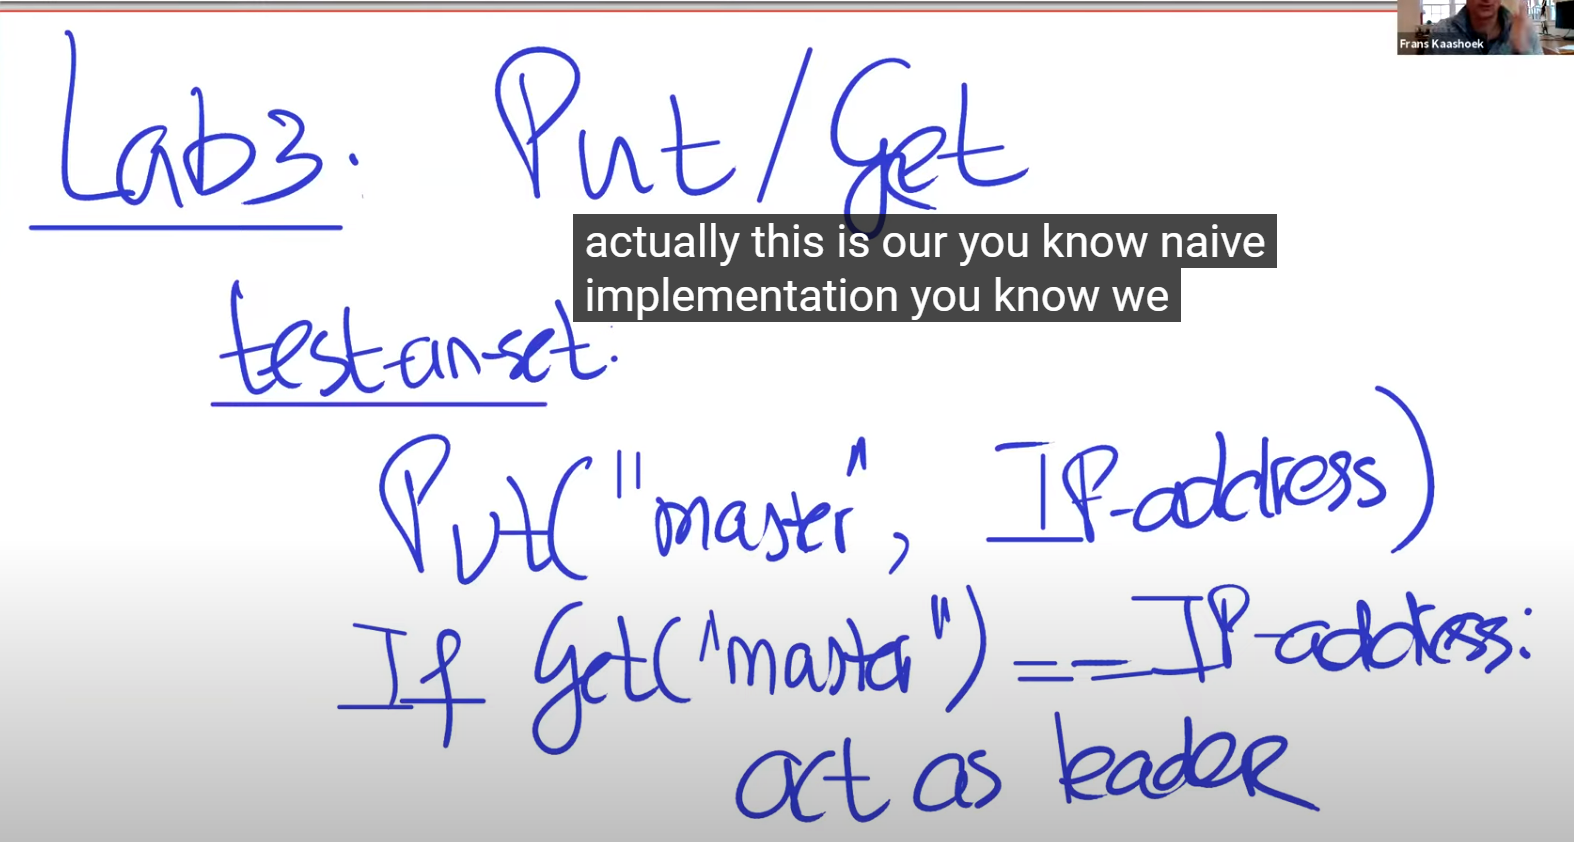 Frans Kaashoek
Lab3: Put/Get
actually this is our you know naive
implementation you know we
test-an-set:
Put("master", IP-address)
If Get("master") == IP-address:
act as leader